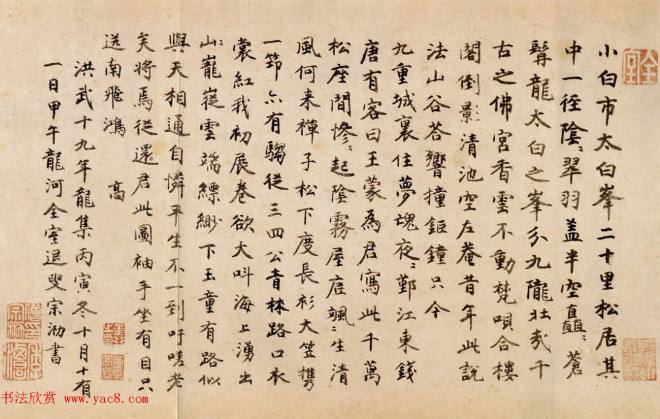 小白市太白峯二十里松居其
中一徑陰〻翠羽盖半空矗〻蒼
髯龍太白之峯分九隴壯哉千
古之佛宮香雲不動梵唄合樓
閣倒影清池空左菴昔年此說
法山谷荅響撞鉅鐘只今
九重城裏住夢魂夜〻鄞江東錢
唐有客曰王蒙為君寫此千萬
松座間慘〻起陰霧屋底颯〻生清
風何来禪子松下度長衫大笠携
一筇亦有騶從三四公青林路口衣
裳紅我初展卷欲大叫海上湧出
山巃嵸雲端縹緲下玉童有路似
與天相通自憐平生不一到吁嗟老
矣將焉從還君此圖袖手坐有目只
送南飛鴻 高
洪武十九年龍集丙寅冬十月十有
一日甲午龍河全室退叟宗泐書
全室
书法欣赏
www.yac8.com